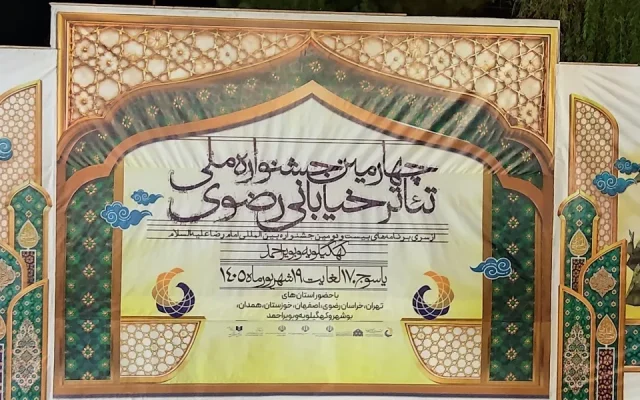 چهارمین جشنواره ملی
تئاتر خیابانی رضوی
از سری برنامه‌های بیست و دومین جشنواره بین المللی امام رضا علیه السلام
کهگیلویه و بویراحمد
یاسوج ۱۷ لغایت ۱۹ شهریور ماه ۱۴۰۵
با حضور استان‌های
تهران، خراسان رضوی، اصفهان، خوزستان، همدان،
بوشهر و کهگیلویه و بویراحمد